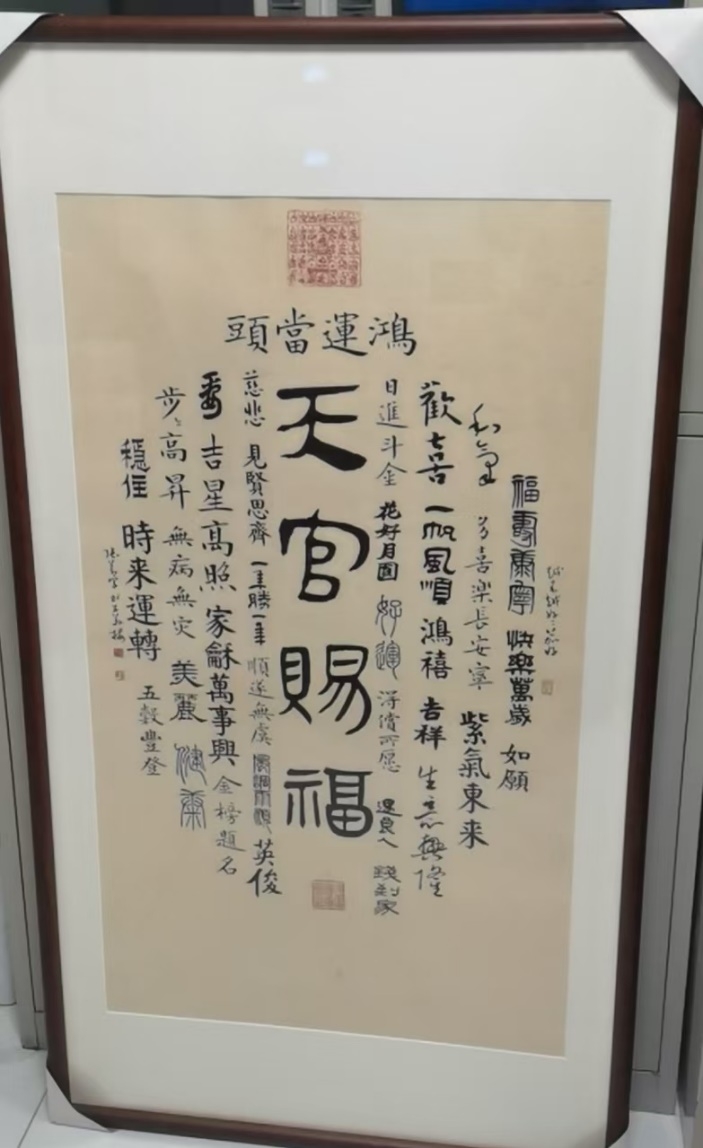 鴻運當頭
福壽康寧 快樂萬歲 如願
和氣 喜樂長安寧 紫氣東来
歡喜 一帆風順 鴻禧 吉祥 生意興隆
日進斗金 花好月圓 好運 得償所愿 遇良人 錢到家
天官賜福
慈悲 見賢思齊 一年勝一年 順遂無虞 風調雨順 英俊
吉星高照 家龢萬事興 金榜題名
步步高昇 無病無灾 美麗 健康
穩住 時来運轉 五穀豐登